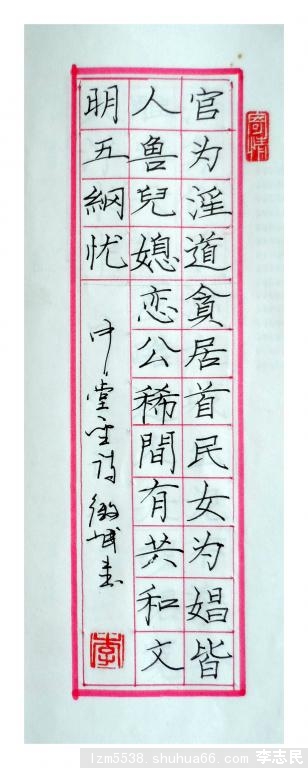 寄情
官为淫道貪居首民女为娼皆
人鲁兒媳恋公稀間有共和文
明五綱忧
中堂 诗
李
lzm5538.shuhua66.com 李志民